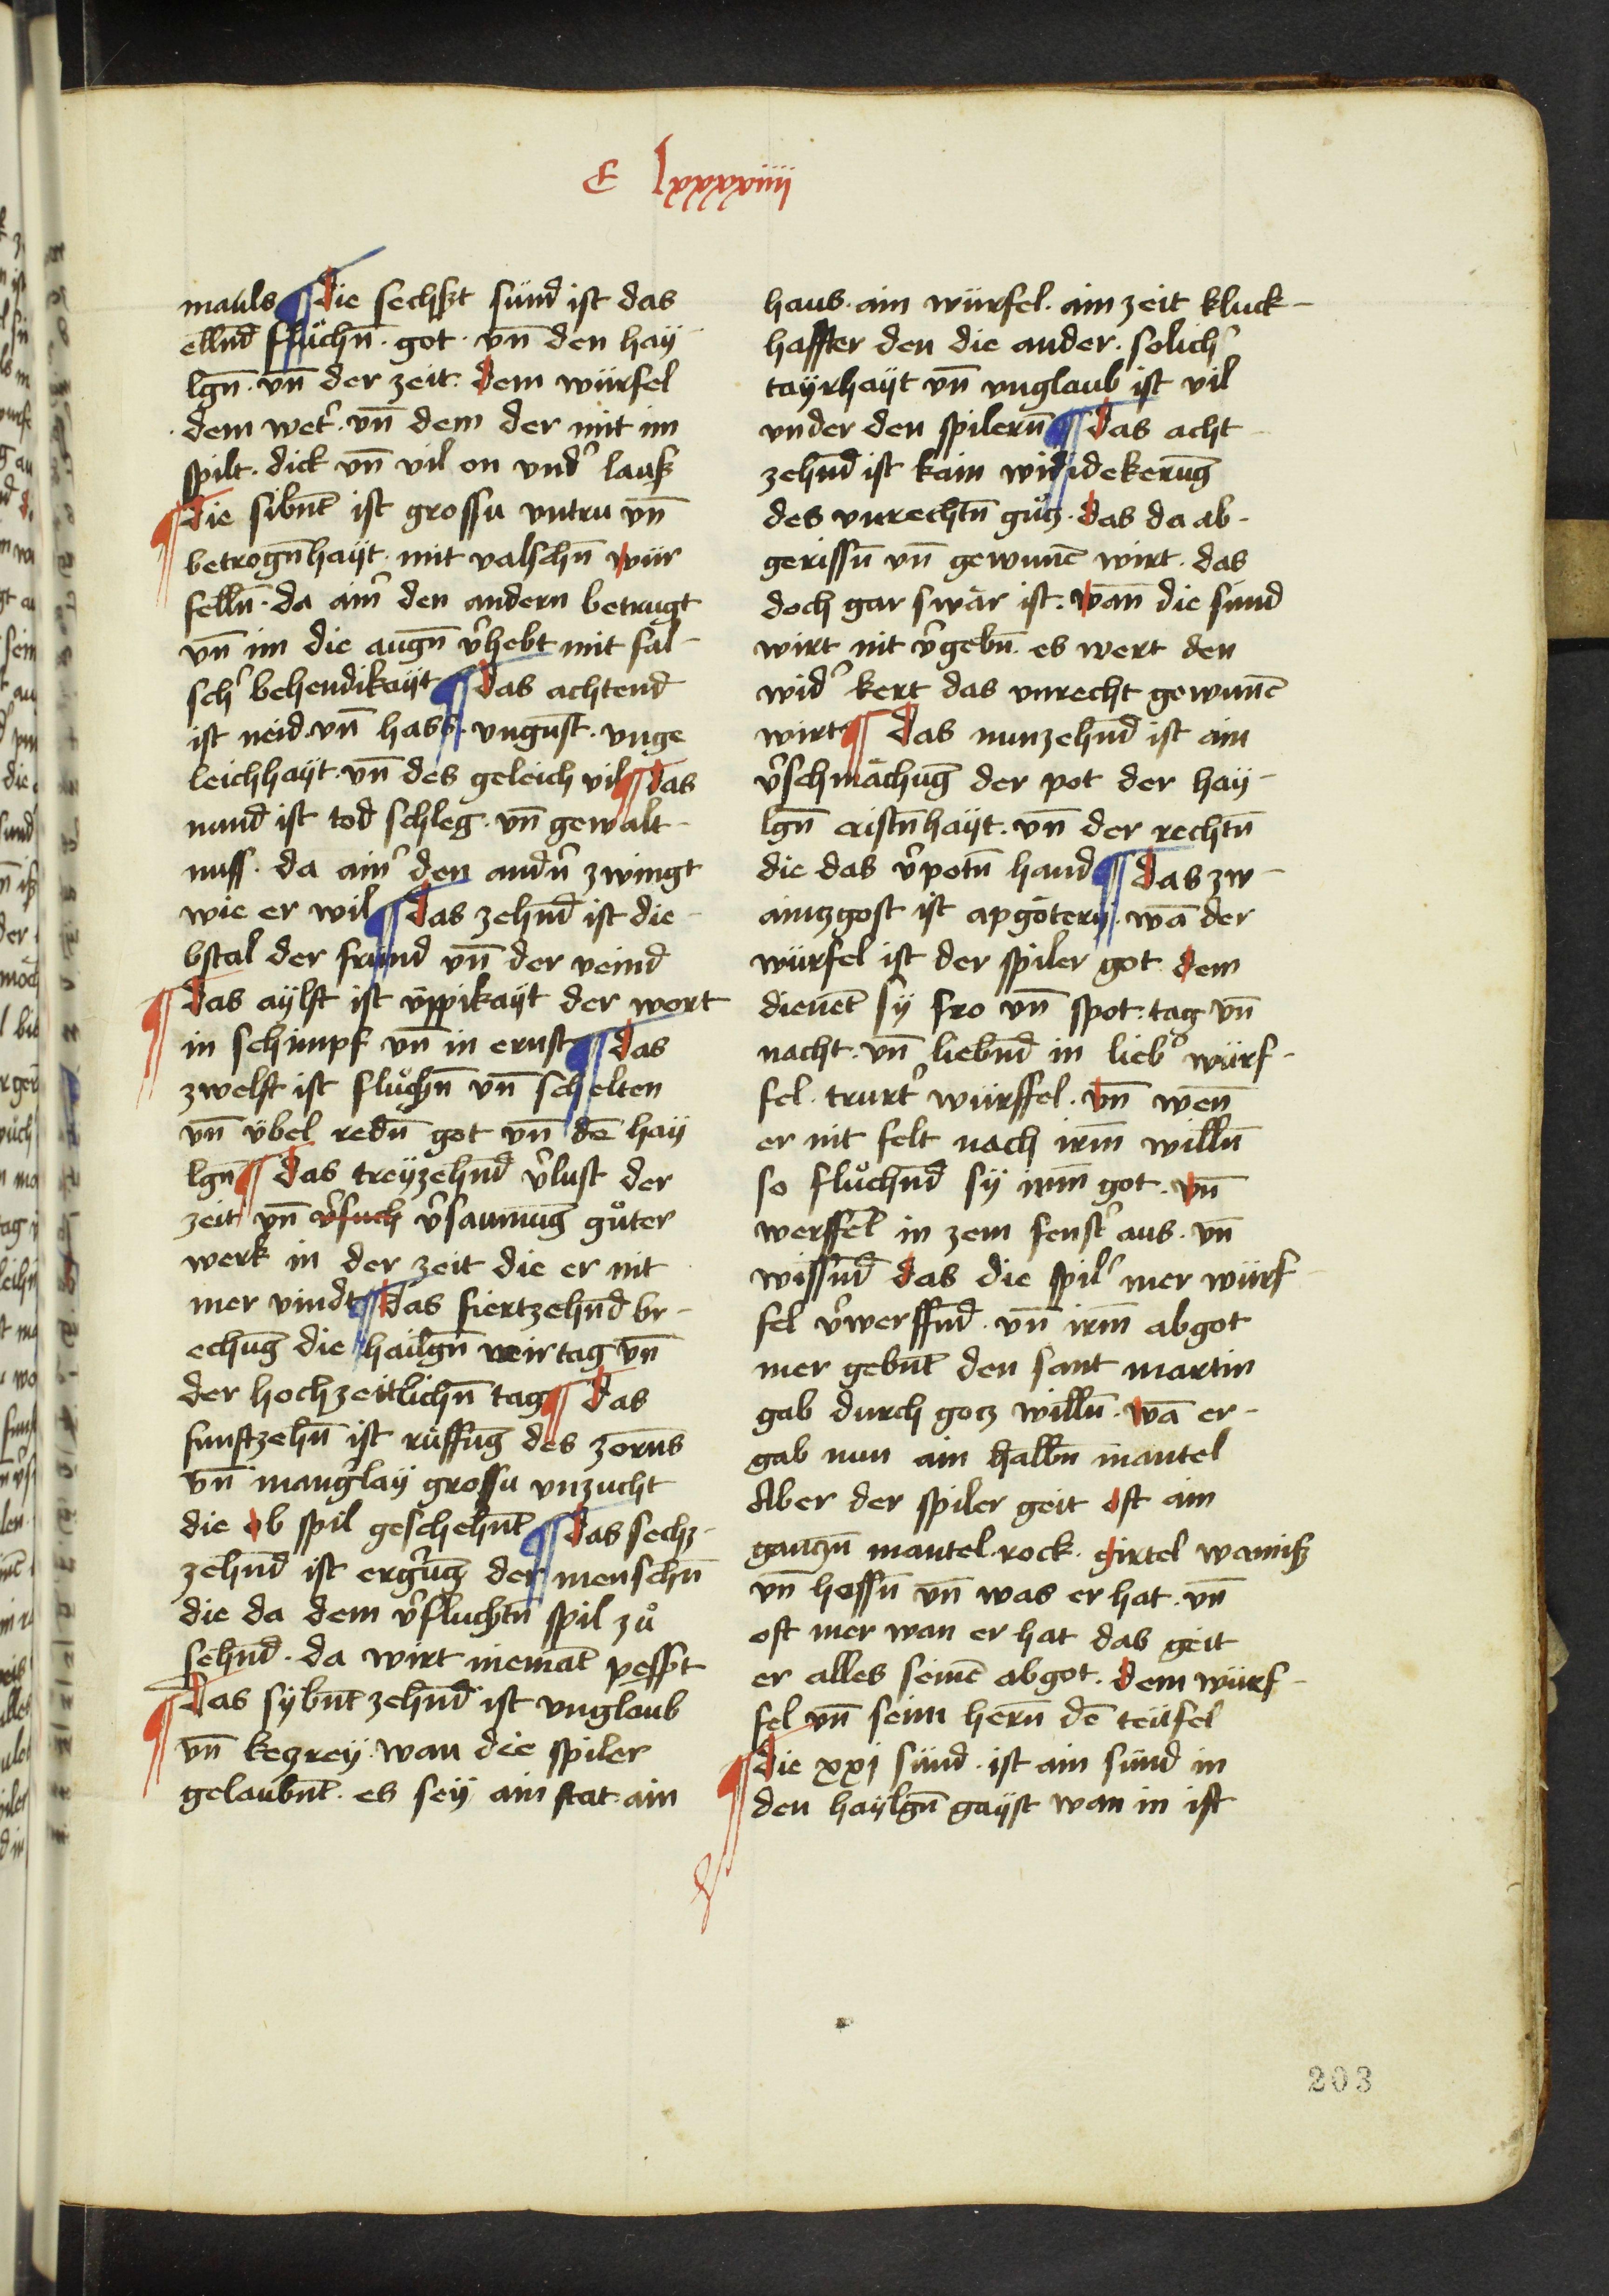 C lxxxxviiii
mauls ¶ die sechßt sünd ist das
ellnd̄ fluͦchn̄ · got · vn̄ den hay-
lgn̄ · vn̄ der zeit · dem würfel
· dem wet᷑ · vn̄ dem der mit im
spilt · dick vn̄ vil on vnd᷑ lauß
¶ die sibnt̄ ist grossu vntru vn̄
betrogn̄hayt · mit valschn̄ wür
felln̄ · da ain᷑ den andern betrugt
vn̄ im die augn̄ v᷑hebt mit fal-
sch᷑ behendikayt ¶ das achtend
ist neid · vn̄ hass · vngunst · vnge
leichhayt · vn̄ des geleich vil ¶ das
nund ist tod schleg · vn̄ gewalt-
nuss · da ain᷑ den and᷑n zwingt
wie er wil ¶ das zehnd̄ ist die-
bstal der frund vn̄ der veind
¶ das aylft ist üppikayt der wort
in schimpf vn̄ in ernst ¶ das
zwelft ist fluͦchn̄ vn̄ schelten
vn̄ übel redn̄ got vn̄ dē hay
lgn̄ ¶ das treyzehnd̄ v᷑lust der
zeit vn̄ v᷑such v᷑saumūg guͦter
werk in der zeit die er nit
mer vindt ¶ das fiertzehnd̄ br-
echūg die hailgn̄ veirtag vn̄
der hochzeitlichn̄ tag ¶ das
funftzehn̄ ist ruͦffūg des zorns
vn̄ mang᷑lay grossu vnzucht
die ob spil geschehnt̄ ¶ das sechz-
zehnd̄ ist erg᷑ūg der menschn̄
die da dem v᷑fluchtn̄ spil zuͦ
sehnd̄ · da wirt niemāt pesspt
¶ das sybnt̄zehnd̄ ist vnglaub
vn̄ kezrey · wan die spiler
gelaubnt̄ · es sey ain stat · ain
haus · ain würfel · ain zeit kluck-
haffter den die ander · solich᷑
tayrhayt vn̄ vnglaub ist vil
vnder den spilern̄ ¶ das acht-
zehnd̄ ist kain wididekerūg
des vnrechtn̄ guͦtz · das da ab-
gerissn̄ vn̄ gewunē wirt · das
doch gar swär ist · wan̄ die sünd
wirt nit v᷑gebn̄ · es wert den
wid᷑ kert das vnrecht gewunē
wirt ¶ das nunzehnd̄ ist ain
v᷑schmächūg der pot der hay-
lgn̄ cristn̄hayt · vn̄ der rechtn̄
die das v᷑potn̄ hand ¶ das zw-
aintzgost ist apgötery · wā der
würfel ist der spiler got · dem
dienēt sy fro vn̄ spot · tag vn̄
nacht · vn̄ liebnd̄ in lieb᷑ würf-
fel · trurt᷑ würffel · vn̄ wen̄
er nit felt nach irm̄ willn̄
so fluͦchnd̄ sy irm̄ got · vn̄
werffēt in zem fenst᷑ aus · vn̄
wissnd̄ das die spil᷑ mer würf-
fel v᷑werffnd̄ · vn̄ irm̄ abgot
mer gebnt̄ den sant martin
gab durch gotz willn̄ · wā er-
gab nun ain halbn̄ mantel
Aber der spiler geit oft ain
gantzn̄ mantel · rock · girtel wamiß
vn̄ hossn̄ vn̄ was er hat · vn̄
oft mer wan er hat das geit
er alles seinē abgot · dem würf-
fel vn̄ seim hern̄ dē teüfel
¶ die xxj sünd · ist ain sünd in
den haylgn̄ gayst wan in ist
203